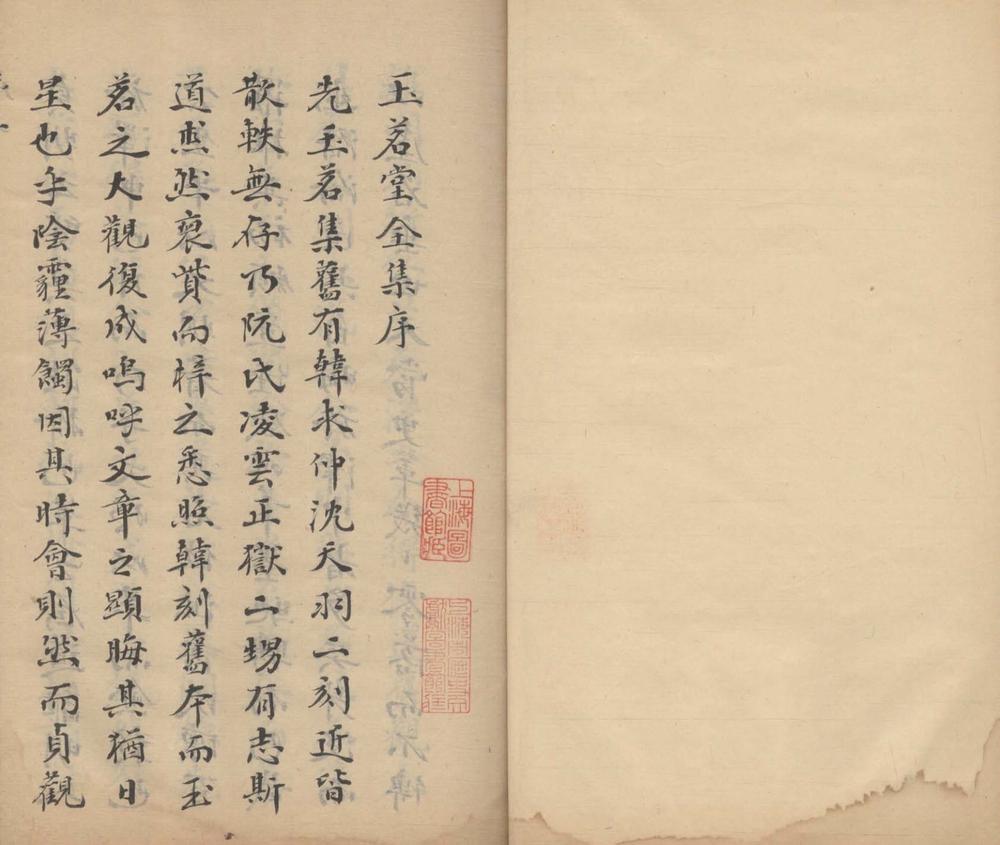 玉茗堂全集序
先玉茗集舊有韓求仲沈天羽二刻近皆
散軼無存乃阮氏凌雲正嶽二甥有志斯
道悊然裒貲而梓之悉照韓刻舊本而玉
茗之大觀復成嗚呼文章之顯晦其猶日
星也乎陰霾薄蠲因其時會則然而貞觀
上海圖書館藏